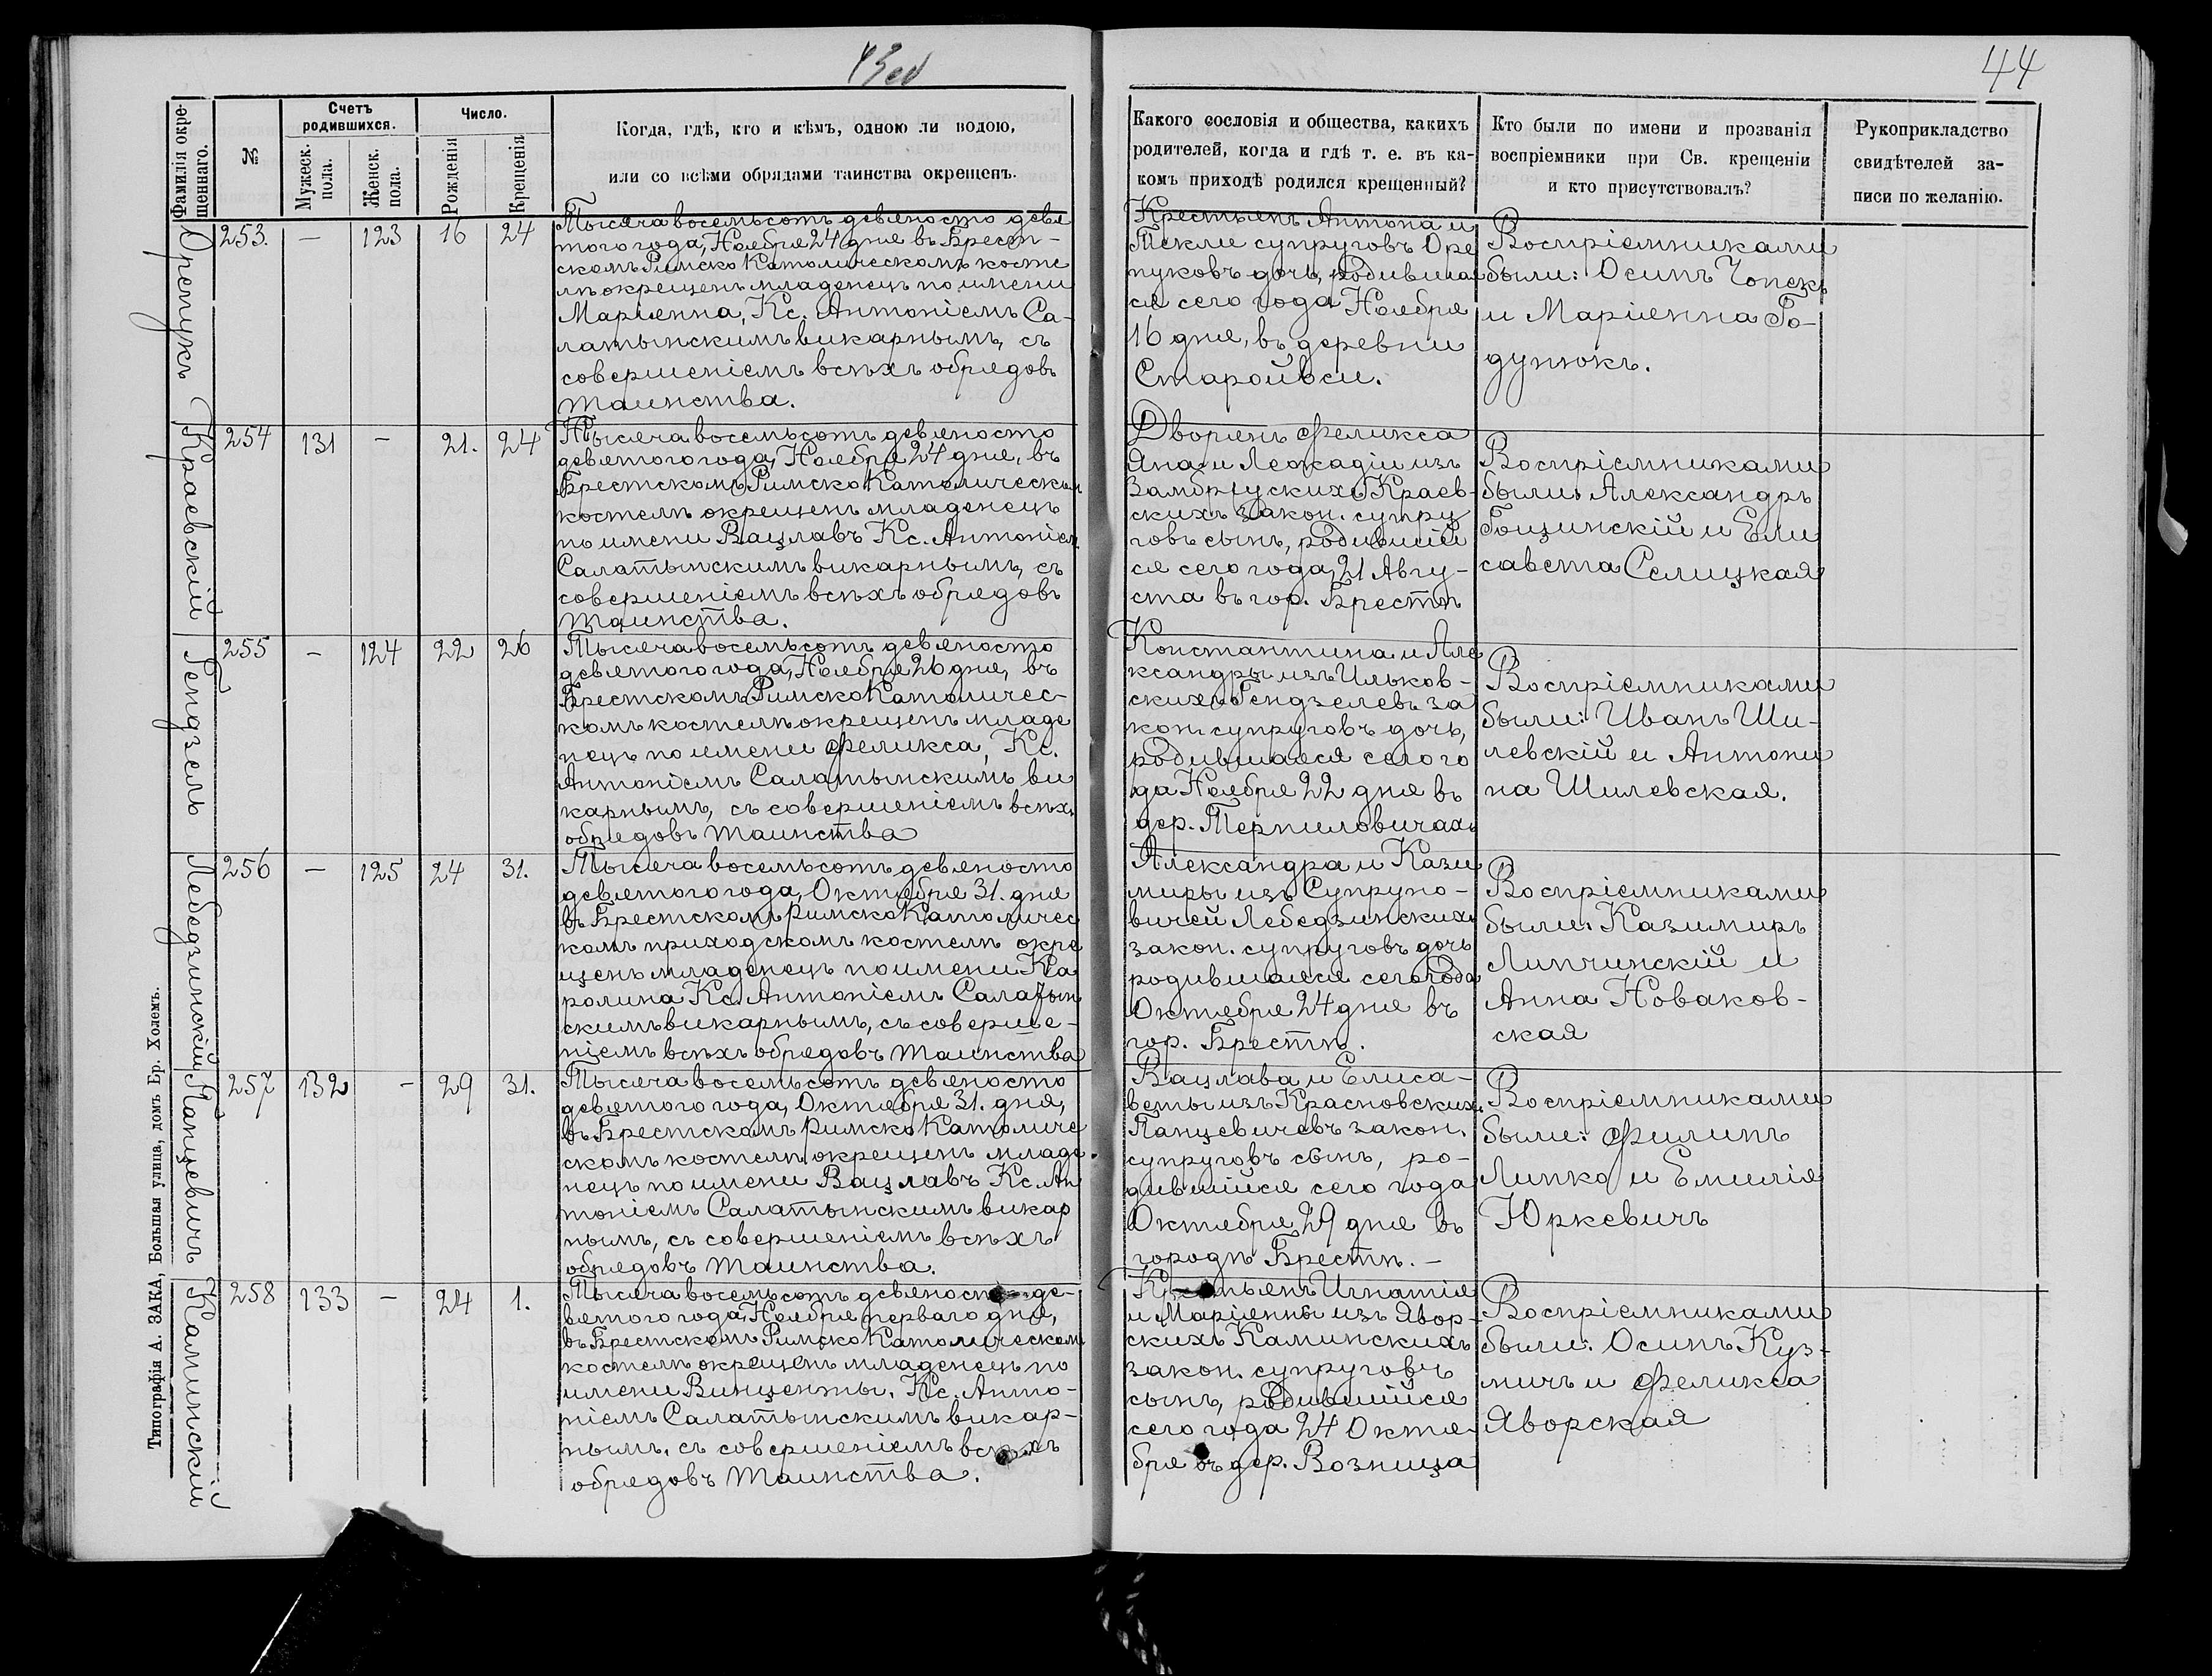 44
Фамилія окре-
щеннаго.
№
Счетъ
родившихся.
Мужеск.
пола.
Женск.
пола.
Число.
Рожденія
Крещенія
Когда, гдѣ, кто и кѣмъ, одною ли водою,
или со всѣми обрядами таинства окрещенъ.
Какого сословія и общества, какихъ
родителей, когда и гдѣ т. е. въ ка-
комъ приходѣ родился крещенный?
Кто были по имени и прозванія
воспріемники при Св. крещеніи
и кто присутствовалъ?
Рукоприкладство
свидѣтелей за-
писи по желанію.
Орепукъ
253. — 123 16 24
Тысяча восемьсотъ девяносто девя
того года, Ноября 24 дня въ Брест-
скомъ Римско Католическомъ косте
лѣ окрещенъ младенецъ по имени
Маріанна, Кс. Антоніемъ Са-
латынскимъ викарнымъ, съ
совершеніемъ всѣхъ обрядовъ
таинства.
Крестьянъ Антона и
Теклы супруговъ Оре
пуковъ дочь, родивша
ся сего года Ноября
16 дня, въ деревни
Воспріемниками
были: Осипъ
и Маріанна Го-
дунюкъ.
Краевскій
254 131 — 21. 24
Тысяча восемьсотъ девяносто
девятого года, Ноября 24 дня, въ
Брестскомъ Римско Католическом
костелѣ окрещенъ младенецъ
по имени Вацлавъ Кс. Антоніем
Салатынскимъ викарнымъ, съ
совершеніемъ всѣхъ обрядовъ
таинства.
Дворянъ Феликса
Яна и Леокадіи изъ
Замбрускихъ Краев-
скихъ закон. супру
говъ сынъ, родившій
ся сего года 21 Авгу-
ста въ гор. Брестѣ
Воспріемниками
были: Александръ
Гощинскій и Ели
савета Селицкая
Гендзель
255 — 124 22 26
Тысяча восемьсотъ девяносто
девятого года, Ноября 26 дня, въ
Брестскомъ Римско Католичес-
комъ костелѣ окрещенъ младе
нецъ по имени Феликса, Кс.
Антоніемъ Салатынскимъ ви
карнымъ, съ совершеніемъ всѣхъ
обрядовъ таинства
Константина и Але
ксандры изъ Ильков-
скихъ Гендзелевъ за
кон. супруговъ дочь,
родившаяся сего го
да Ноября 22 дня въ
дер. Терпиловичахъ
Воспріемниками
были: Иванъ Ши-
левскій и Антони
на Шилевская.
Лебедзинскій
256 — 125 24 31.
Тысяча восемьсотъ девяносто
девятого года, Октября 31. дня
въ Брестскомъ Римско Католичес
комъ приходскомъ костелѣ окре
щенъ младенецъ по имени Ка
ролина Кс. Антоніемъ Салатын
скимъ викарнымъ, съ соверше-
ніемъ всѣхъ обрядовъ таинства
Александра и Кази
миры изъ Супруно-
вичей Лебедзинскихъ
закон. супруговъ дочь
родившаяся сего года
Октября 24 дня въ
гор. Брестѣ.
Воспріемниками
были: Казимиръ
Липчинскій и
Анна Новаков-
ская
Панцевичъ
257 132 — 29 31.
Тысяча восемьсотъ девяносто
девятого года, Октября 31. дня,
въ Брестскомъ Римско Католиче
скомъ костелѣ окрещенъ младе
нецъ по имени Вацлавъ Кс. Ан
тоніемъ Салатынскимъ викар
нымъ, съ совершеніемъ всѣхъ
обрядовъ таинства.
Вацлава и Елиса-
веты изъ Красновскихъ
Панцевичевъ закон.
супруговъ сынъ, ро-
дившійся сего года
Октября 29 дня въ
городѣ Брестѣ. —
Воспріемниками
были: Филипъ
Липко и Емилія
Юркевичъ
Каминскій
258 133 — 24 1.
Тысяча восемьсотъ девяносто де-
вятого года, Ноября перваго дня,
въ Брестскомъ Римско Католическом
костелѣ окрещенъ младенецъ по
имени Винценты, Кс. Анто-
ніемъ Салатынскимъ викар-
нымъ, съ совершеніемъ всѣхъ
обрядовъ таинства.
Крестьянъ Игнатія
и Маріанны изъ Явор-
скихъ Каминскихъ
закон. супруговъ
сынъ, родившійся
сего года 24 Октя-
бря въ дер. Возница
Воспріемниками
были: Осипъ Куз-
мичъ и Феликса
Яворская
Типографія А. ЗАКА, Большая улица, домъ Бр. Холемъ.